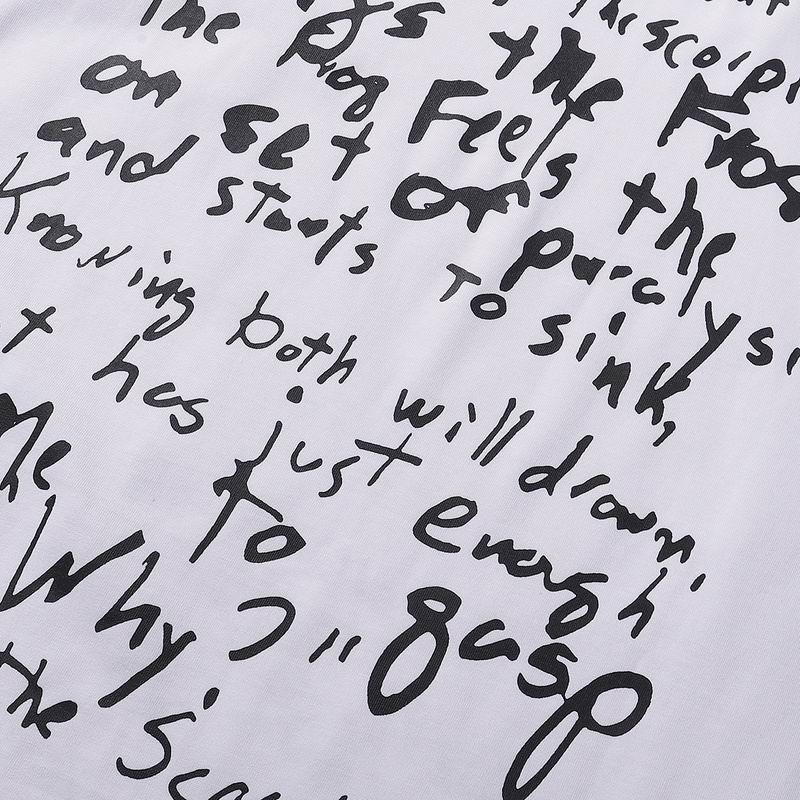 the scorpi
gs the Frog
The Frog Feels the
on set of paralysi
and starts to sink,
Knowing both will drown,
t has just enough
Me to "gasp
Why?
the Scor